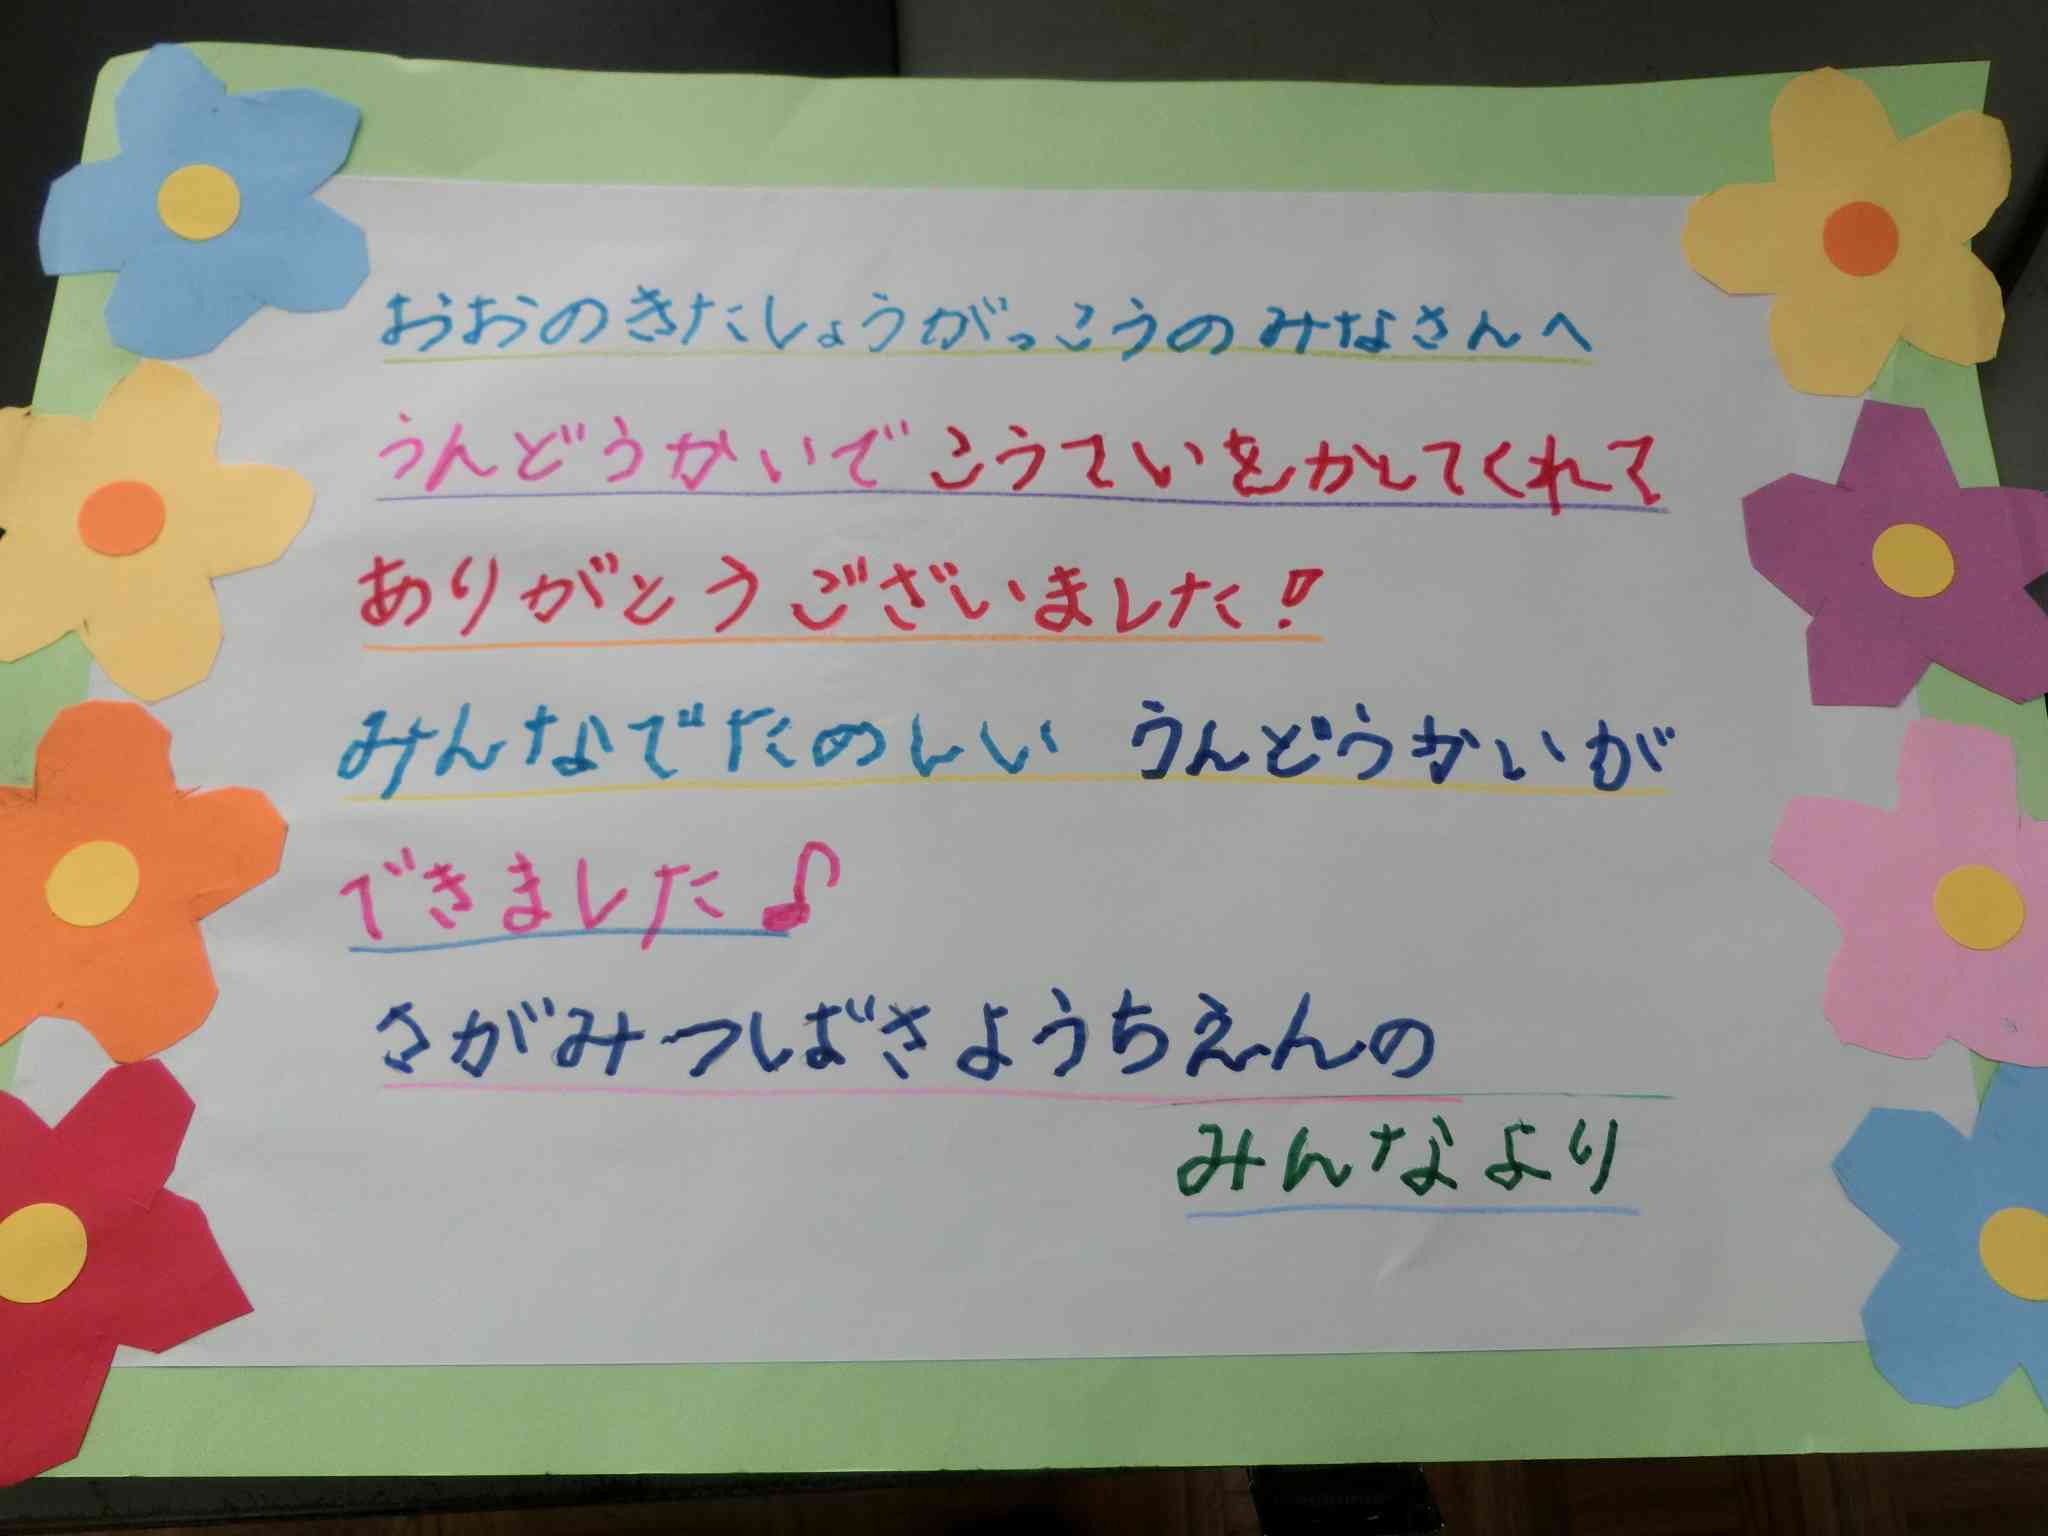 おおのきたしょうがっこうのみなさんへ
うんどうかいで こうていをかしてくれて
ありがとうございました!
みんなでたのしい うんどうかいが
できました♪
さがみつばきようちえんの
みんなより